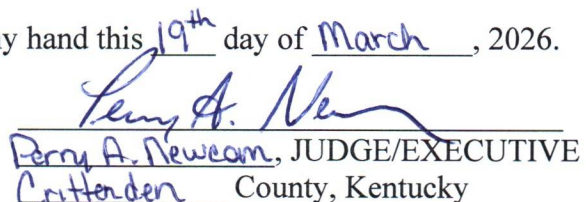 y hand this 19th day of March, 2026.
Perry A. New
Perry A. Newcom, JUDGE/EXECUTIVE
Crittenden County, Kentucky